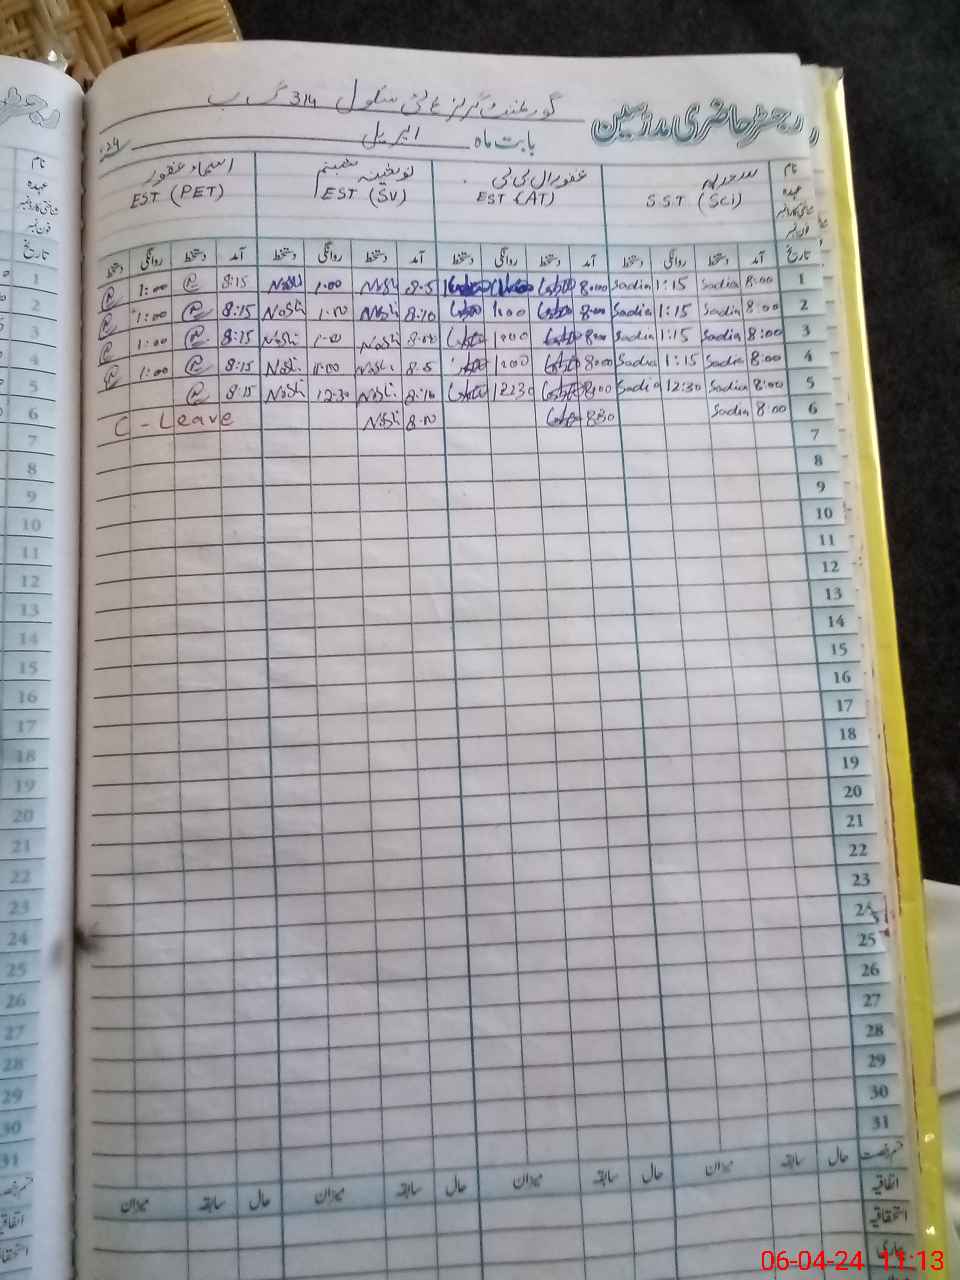 رجسٹر حاضری مدرسین
گورنمنٹ گرلز ہائی سکول 314 گ ب
بابت ماہ اپریل 24ء
نام سعدیہ غفوراں بی بی نوشینہ شبنم اسماء غفور
عہدہ SST (Sci) EST (AT) EST (SV) EST (PET)
شناختی کارڈ نمبر
فون نمبر
تاریخ آمد دستخط روانگی دستخط آمد دستخط روانگی دستخط آمد دستخط روانگی دستخط آمد دستخط روانگی دستخط
1 8:00 Sadia 1:15 Sadia 8:00 8:5 Nosh 1:00 Nosh 8:15 1:00
2 8:00 Sadia 1:15 Sadia 8:00 1:00 8:10 Nosh 1:00 Nosh 8:15 1:00
3 8:00 Sadia 1:15 Sadia 8:00 1:00 Nosh 1:00 Nosh 8:15 1:00
4 8:00 Sadia 1:15 Sadia 8:00 1:00 8:5 Nosh 1:00 Nosh 8:15 1:00
5 8:00 Sadia 12:30 Sadia 8:00 12:30 8:10 Nosh 12:30 Nosh 8:15
6 8:00 Sadia 8:30 8:10 Nosh C - Leave
7
8
9
10
11
12
13
14
15
16
17
18
19
20
21
22
23
24
25
26
27
28
29
30
31
قسم رخصت حال سابقہ میزان حال سابقہ میزان حال سابقہ میزان
اتفاقیہ
استحقاقیہ
بیماری
06-04-24 11:13